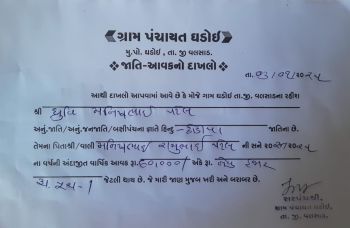 ગ્રામ પંચાયત ઘડોઈ
મુ.પો. ઘડોઈ, તા. જી વલસાડ.
જાતિ-આવકનો દાખલો
તા. ૦૩/૦૧/૨૦૨૫
આથી દાખલો આપવામાં આવે છે કે મોજે ગામ ઘડોઈ તા.જી. વલસાડના રહીશ
શ્રી ધ્રુવિ પટેલ
અનું.જાતિ/અનું.જનજાતિ/બક્ષીપંચના જ્ઞાતે હિન્દુ- ધોડીયા જાતિના છે.
તેમના પિતાશ્રી/વાલી પટેલ ની સને
ના વર્ષની અંદાજીત વાર્ષિક આવક રૂા. ૬૦,૦૦૦/ અંકે રૂા. હજાર
જેટલી થાય છે. જે મારી જાણ મુજબ ખરી અને બરાબર છે.
સરપંચશ્રી
ગ્રામ પંચાયત ઘડોઈ
તા. જી. વલસાડ.